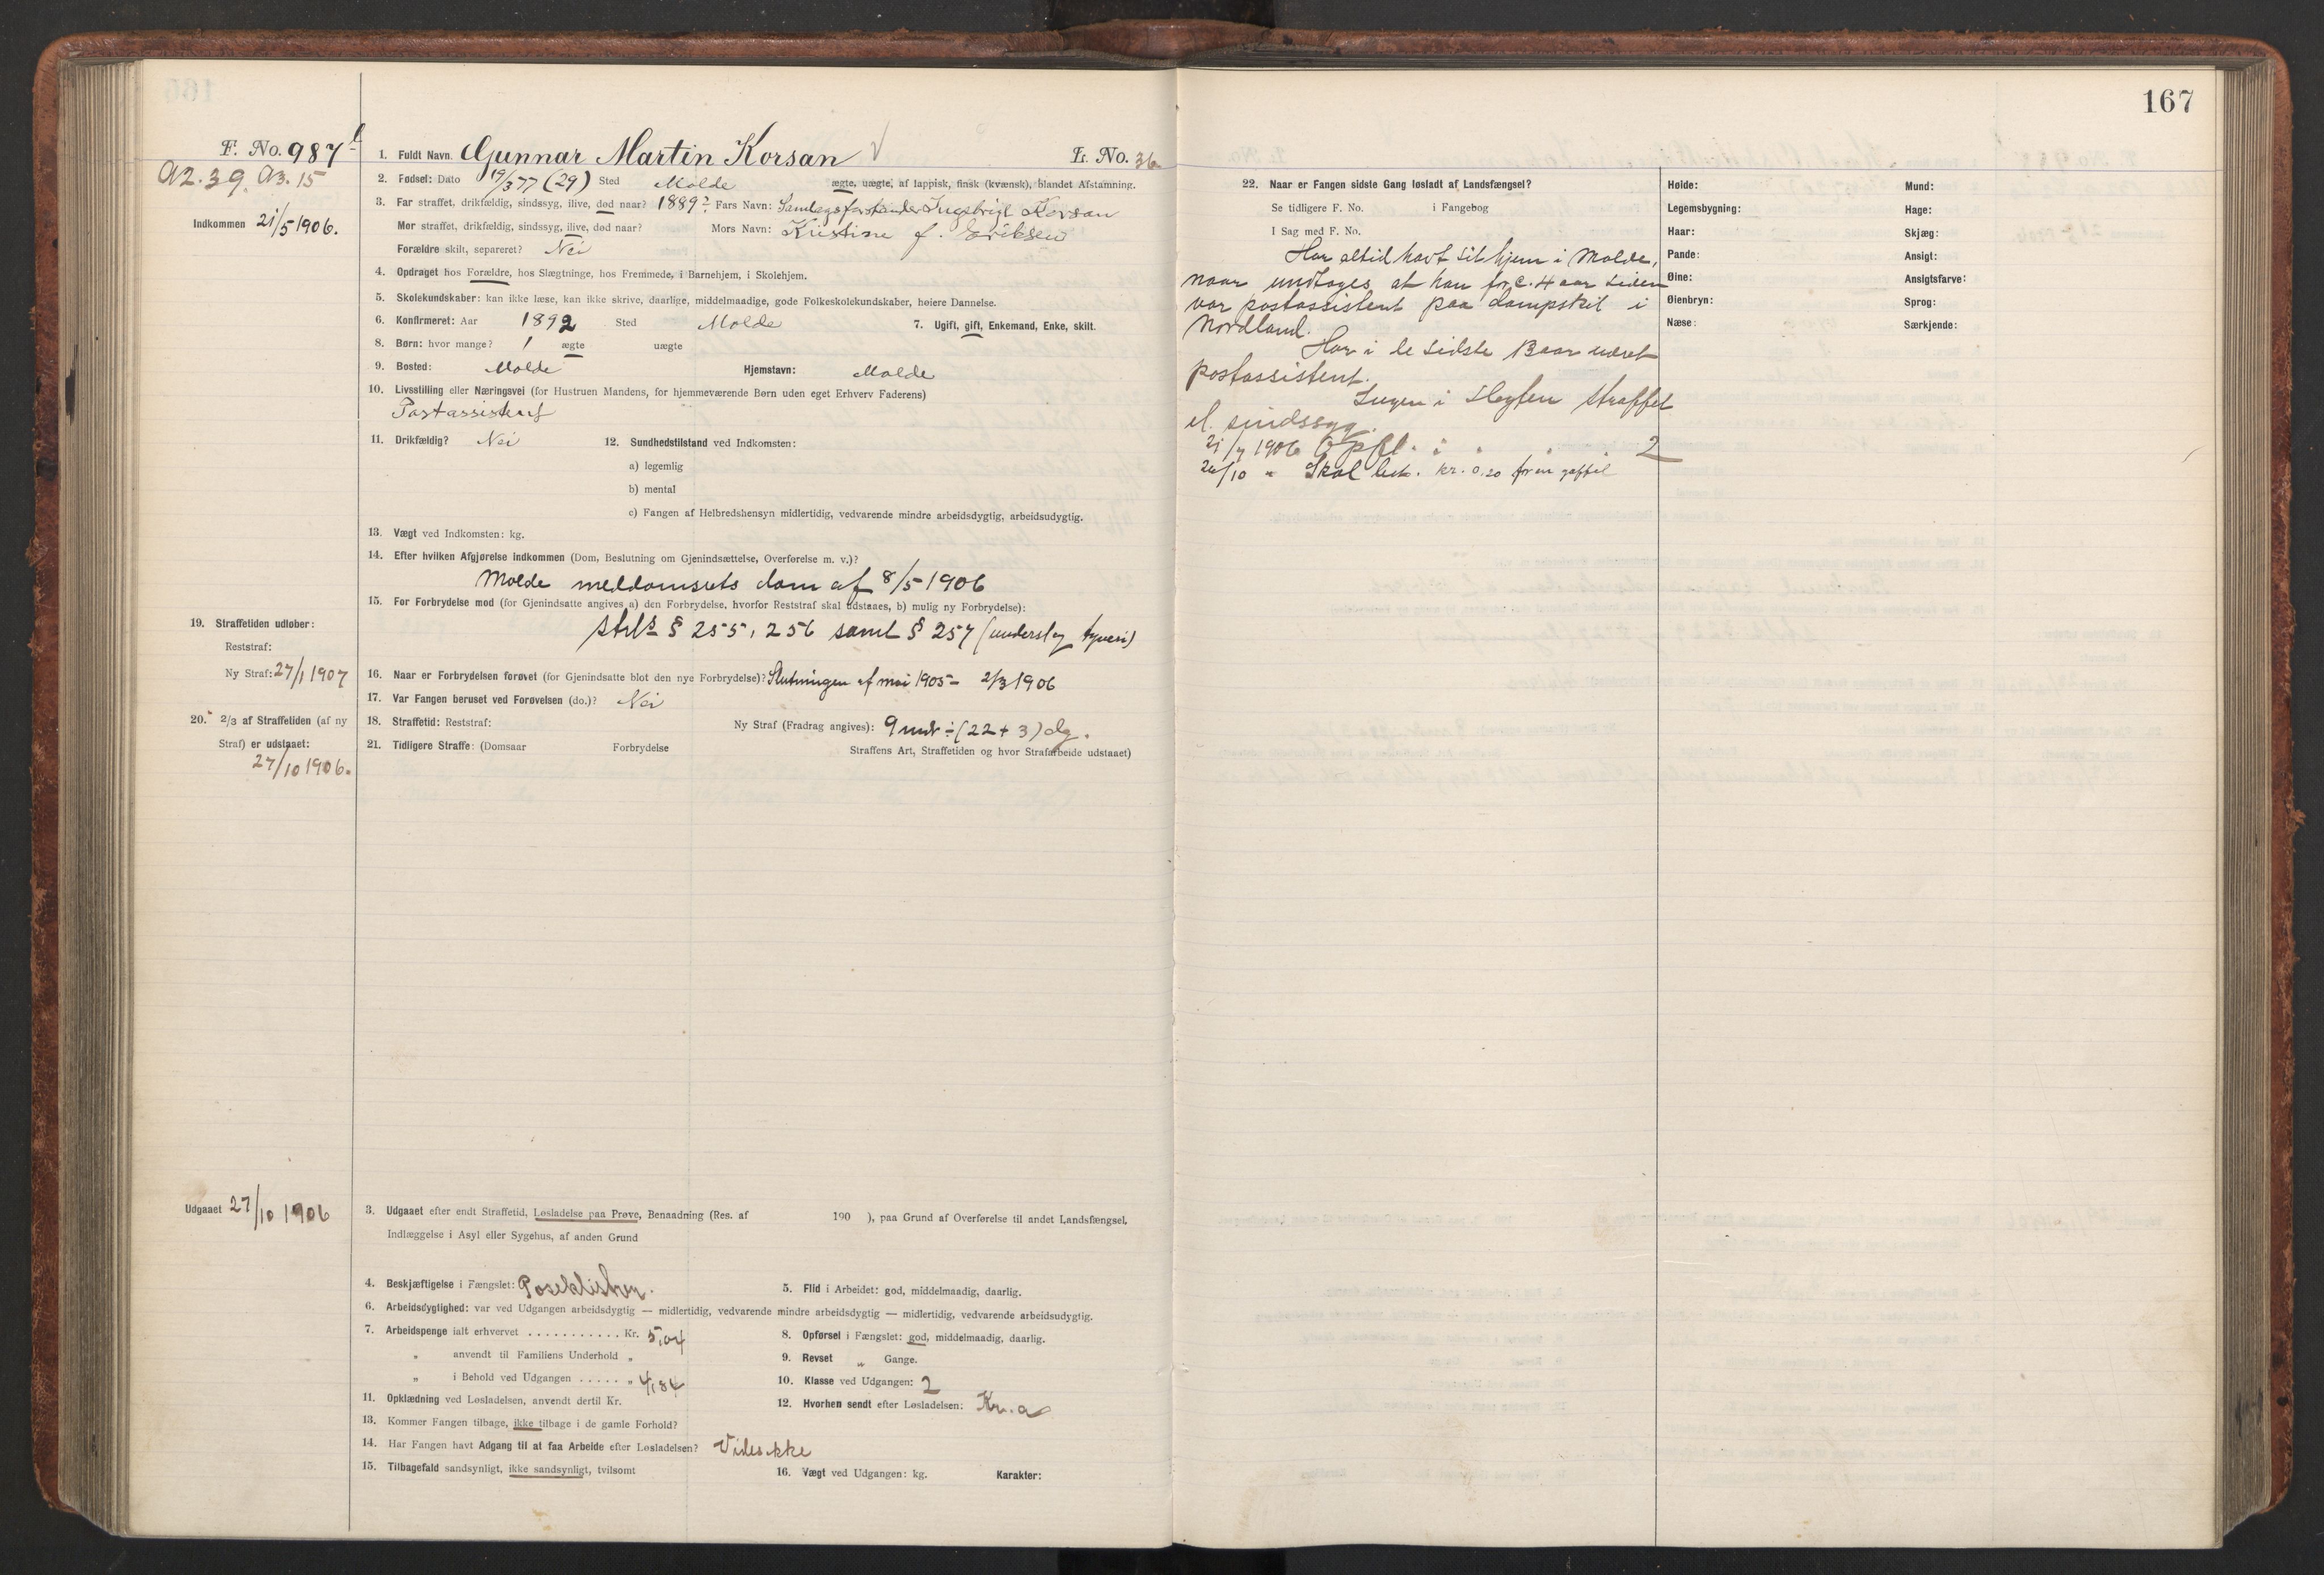 167
F. No. 987 b
a2. 39. a3. 15
Indkommen 21/5 1906.
1. Fuldt Navn. Gunnar Martin Korsan
L. No. 36
2. Fødsel: Dato 19/3 77 (29) Sted Molde ægte, uægte, af lappisk, finsk (kvænsk), blandet Afstamning.
3. Far straffet, drikfældig, sindssyg, ilive, død naar? 1889? Fars Navn: Samlagsforstander Korsan
Mor straffet, drikfældig, sindssyg, ilive, død naar? Mors Navn: Kristine f. Eriksen
Forældre skilt, separeret? Nei
4. Opdraget hos Forældre, hos Slægtninge, hos Fremmede, i Barnehjem, i Skolehjem.
5. Skolekundskaber: kan ikke læse, kan ikke skrive, daarlige, middelmaadige, gode Folkeskolekundskaber, høiere Dannelse.
6. Konfirmeret: Aar 1892 Sted Molde 7. Ugift, gift, Enkemand, Enke, skilt.
8. Børn: hvor mange? 1 ægte uægte
9. Bosted: Molde Hjemstavn: Molde
10. Livsstilling eller Næringsvei (for Hustruen Mandens, for hjemmeværende Børn uden eget Erhverv Faderens)
Postassistent
11. Drikfældig? Nei 12. Sundhedstilstand ved Indkomsten:
a) legemlig
b) mental
c) Fangen af Helbredshensyn midlertidig, vedvarende mindre arbeidsdygtig, arbeidsudygtig.
13. Vægt ved Indkomsten: kg.
14. Efter hvilken Afgjørelse Indkommen (Dom, Beslutning om Gjenindsættelse, Overførelse m. v.)?
Molde meddomsrets dom af 8/5 1906
15. For Forbrydelse mod (for Gjenindsatte angives a) den Forbrydelse, hvorfor Reststraf skal udstaaes, b) mulig ny Forbrydelse):
Strl § 255, 256 samt § 257 (underslag tyveri)
16. Naar er Forbrydelsen forøvet (for Gjenindsatte blot den nye Forbrydelse)? Slutningen af mai 1905 - 2/3 1906
17. Var Fangen beruset ved Forøvelsen (do.)? Nei
18. Straffetid: Reststraf: Ny Straf (Fradrag angives): 9 mdr ÷ (22 + 3) dg.
21. Tidligere Straffe: (Domsaar Forbrydelse Straffens Art, Straffetiden og hvor Strafarbeide udstaaet)
19. Straffetiden udløber:
Reststraf:
Ny Straf: 27/1 1907
20. 2/3 af Straffetiden (af ny
Straf) er udstaaet:
27/10 1906.
Udgaaet 27/10 1906
3. Udgaaet efter endt Straffetid, Løsladelse paa Prøve, Benaadning (Res. af 190 ), paa Grund af Overførelse til andet Landsfængsel,
Indlæggelse i Asyl eller Sygehus, af anden Grund
4. Beskjæftigelse i Fængslet: Poseklistren. 5. Flid i Arbeidet: god, middelmaadig, daarlig.
6. Arbeidsdygtighed: var ved Udgangen arbeidsdygtig — midlertidig, vedvarende mindre arbeidsdygtig — midlertidig, vedvarende arbeidsudygtig.
7. Arbeidspenge ialt erhvervet ........... Kr. 5,04 8. Opførsel i Fængslet: god, middelmaadig, daarlig.
„ anvendt til Familiens Underhold „ 9. Revset „ Gange.
„ i Behold ved Udgangen ..... „ 4,84 10. Klasse ved Udgangen: 2
11. Opklædning ved Løsladelsen, anvendt dertil Kr. 12. Hvorhen sendt efter Løsladelsen: Kr.a
13. Kommer Fangen tilbage, ikke tilbage i de gamle Forhold?
14. Har Fangen havt Adgang til at faa Arbeide efter Løsladelsen? Vides ikke
15. Tilbagefald sandsynligt, ikke sandsynligt, tvilsomt 16. Vægt ved Udgangen: kg. Karakter:
22. Naar er Fangen sidste Gang løsladt af Landsfængsel?
Se tidligere F. No. i Fangebog
I Sag med F. No.
Har altid havt sit hjem i Molde,
naar undtages at han for c. 4 aar siden
var postassistent paa dampskib i
Nordland.
Har i de sidste 13 aar været
postassistent.
Ingen i slegten straffet
el. sindssyg.
21/7 1906 Opfl. i 2
26/10 " Skal bet. kr. 0,20 for en gaffel
Høide: Mund:
Legemsbygning: Hage:
Haar: Skjæg:
Pande: Ansigt:
Øine: Ansigtsfarve:
Øienbryn: Sprog:
Næse: Særkjende: